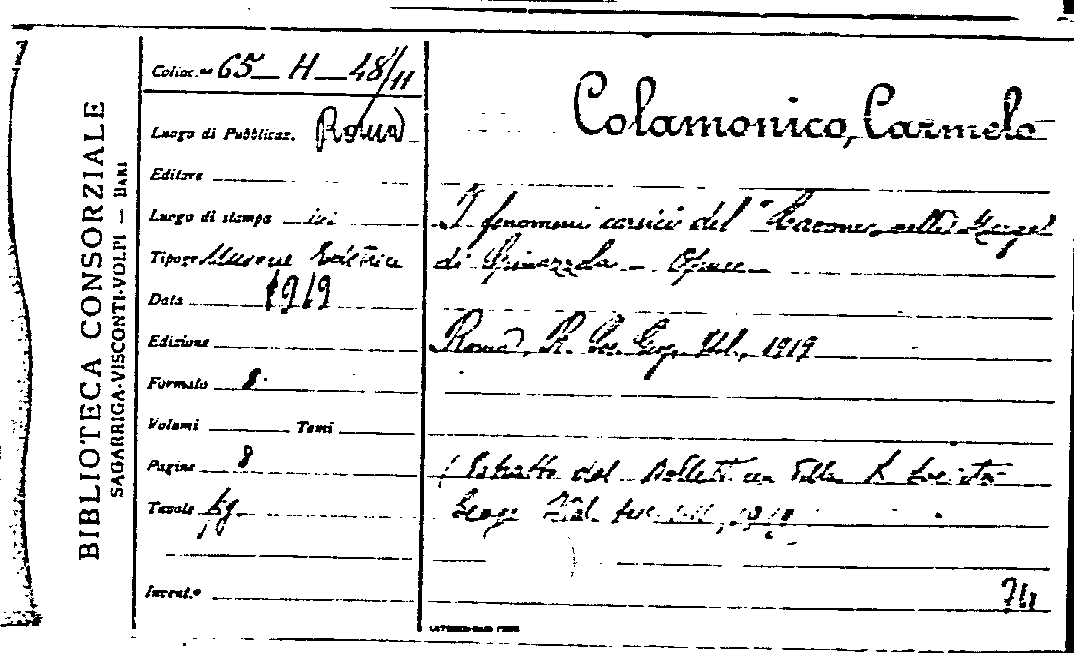 BIBLIOTECA CONSORZIALE
SAGARRIGA-VISCONTI-VOLPI — BARI
Colloc.ne 65 H 48/11
Luogo di Pubblicaz. Roma
Editore
Luogo di stampa ivi
Tipogr.
Data 1919
Edizione
Formato 8º
Volumi Tomi
Pagine 8
Tavole fig.
Invent.º
Colamonico, Carmelo
I fenomeni carsici del nelle Murge
di Spinazzola - Opusc.
Roma, R. Soc. Geog. Ital., 1919
(Estratto del Bollettino della R. Società
Geogr. Ital. 1919